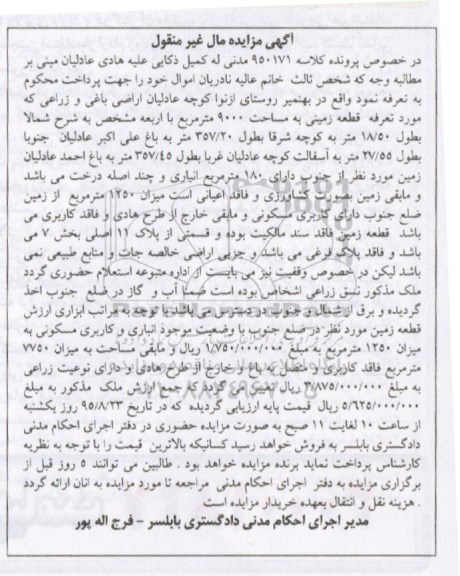 آگهی مزایده مال غیر منقول
در خصوص پرونده کلاسه ۹۵۰۱۷۱ مدنی له کمیل ذکایی علیه هادی عادلیان مبنی بر
مطالبه وجه که شخص ثالث خانم عالیه نادریان اموال خود را جهت پرداخت محکوم
به تعرفه نمود واقع در بهنمیر روستای ازنوا کوچه عادلیان اراضی باغی و زراعی که
مورد تعرفه قطعه زمینی به مساحت ۹۰۰۰ مترمربع با اربعه مشخص به شرح شمالا
بطول ۱۸/۵۰ متر به کوچه شرقا بطول ۳۵۷/۲۰ متر به باغ علی اکبر عادلیان جنوبا
بطول ۲۷/۵۵ متر به آسفالت کوچه عادلیان غربا بطول ۳۵۷/۴۵ متر به باغ احمد عادلیان
زمین مورد نظر از جنوب دارای ۱۸۰ مترمربع انباری و چند اصله درخت می باشد
و مابقی زمین بصورت کشاورزی و فاقد اعیانی است میزان ۱۲۵۰ مترمربع از زمین
ضلع جنوب دارای کاربری مسکونی و مابقی خارج از طرح هادی و فاقد کاربری می
باشد قطعه زمین فاقد سند مالکیت بوده و قسمتی از پلاک ۱۱ اصلی بخش ۷ می
باشد و فاقد پلاک فرعی می باشد و جزیی اراضی خالصه جات و منابع طبیعی نمی
باشد لیکن در خصوص وقفیت نیز می بایست از اداره متبوعه استعلام حضوری گردد
ملک مذکور نسق زراعی اشخاص بوده است ضمنا آب و گاز در ضلع جنوب اخذ
گردیده و برق از شمال و جنوب در دسترس می باشد با توجه به مراتب ابزاری ارزش
قطعه زمین مورد نظر در ضلع جنوب با وضعیت موجود انباری و کاربری مسکونی به
میزان ۱۲۵۰ مترمربع به مبلغ ۱/۷۵۰/۰۰۰/۰۰۰ ریال و مابقی مساحت به میزان ۷۷۵۰
مترمربع فاقد کاربری و متصل به باغ و خارج از طرح هادی و دارای نوعیت زراعی
به مبلغ ۳/۸۷۵/۰۰۰/۰۰۰ ریال تعیین می گردد که جمعا ارزش ملک مذکور به مبلغ
۵/۶۲۵/۰۰۰/۰۰۰ ریال قیمت پایه ارزیابی گردیده که در تاریخ ۹۵/۸/۲۳ روز یکشنبه
از ساعت ۱۰ لغایت ۱۱ صبح به صورت مزایده حضوری در دفتر اجرای احکام مدنی
دادگستری بابلسر به فروش خواهد رسید کسانیکه بالاترین قیمت را با توجه به نظریه
کارشناس پرداخت نماید برنده مزایده خواهد بود . طالبین می توانند ۵ روز قبل از
برگزاری مزایده به دفتر اجرای احکام مدنی مراجعه تا مورد مزایده به انان ارائه گردد
. هزینه نقل و انتقال بعهده خریدار مزایده است
مدیر اجرای احکام مدنی دادگستری بابلسر - فرج اله پور